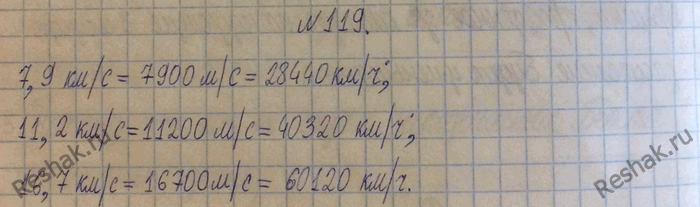 N119.
7,9 км/с = 7900 м/с = 28440 км/ч;
11,2 км/с = 11200 м/с = 40320 км/ч;
16,7 км/с = 16700 м/с = 60120 км/ч.
Reshak.ru
Reshak.ru